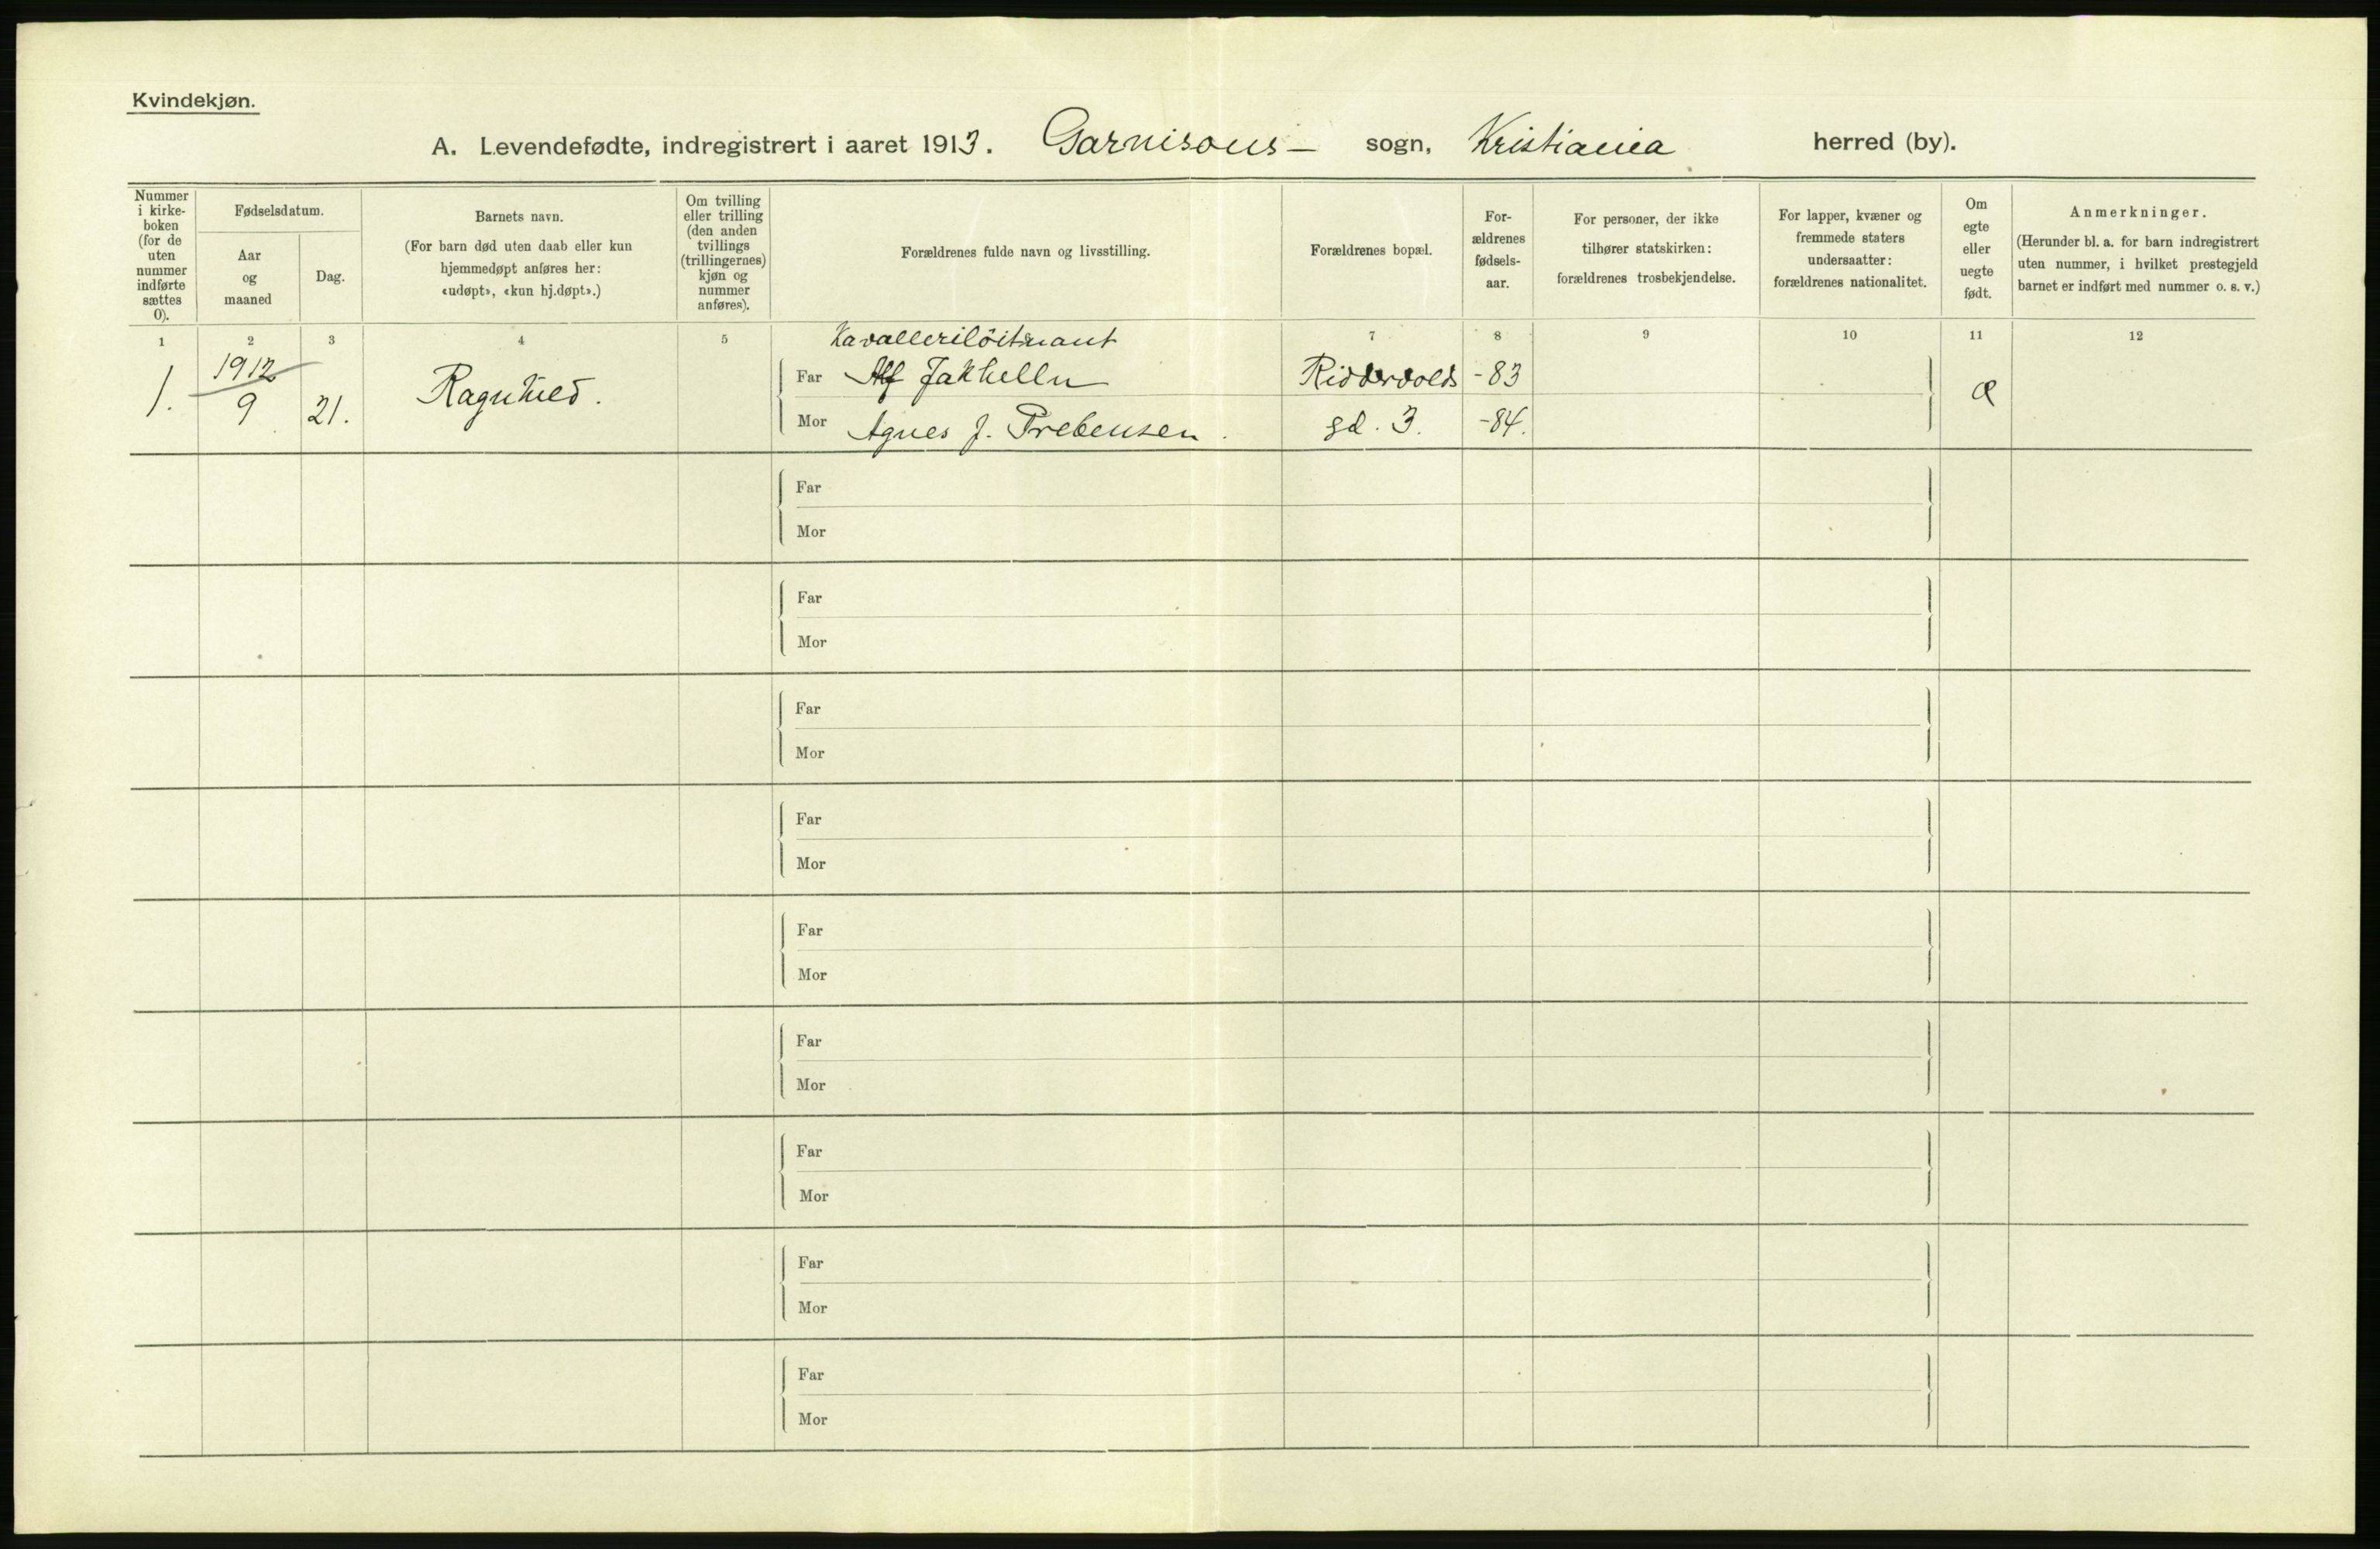 Kvindekjøn.
A. Levendefødte, indregistrert i aaret 1913. Garnisons- sogn, Kristiania herred (by).
Nummer
i kirke-
boken
(for de
uten
nummer
indførte
sættes
0).
Fødselsdatum.
Aar
og
maaned
Dag.
Barnets navn.
(For barn død uten daab eller kun
hjemmedøpt anføres her:
«udøpt», «kun hj.døpt».)
Om tvilling
eller trilling
(den anden
tvillings
(trillingernes)
kjøn og
nummer
anføres).
Forældrenes fulde navn og livsstilling.
Forældrenes bopæl.
For-
ældrenes
fødsels-
aar.
For personer, der ikke
tilhører statskirken:
forældrenes trosbekjendelse.
For lapper, kvæner og
fremmede staters
undersaatter:
forældrenes nationalitet.
Om
egte
eller
uegte
født.
Anmerkninger.
(Herunder bl. a. for barn indregistrert
uten nummer, i hvilket prestegjeld
barnet er indført med nummer o. s. v.)
1 2 3 4 5 7 8 9 10 11 12
1. 1912
9 21. Ragnhild.
Kavalleriløitnant
Far Alf Jakhelln Riddervolds -83
Mor Agnes J. Prebensen. gd. 3. -84.
Æ
Far
Mor
Far
Mor
Far
Mor
Far
Mor
Far
Mor
Far
Mor
Far
Mor
Far
Mor
Far
Mor